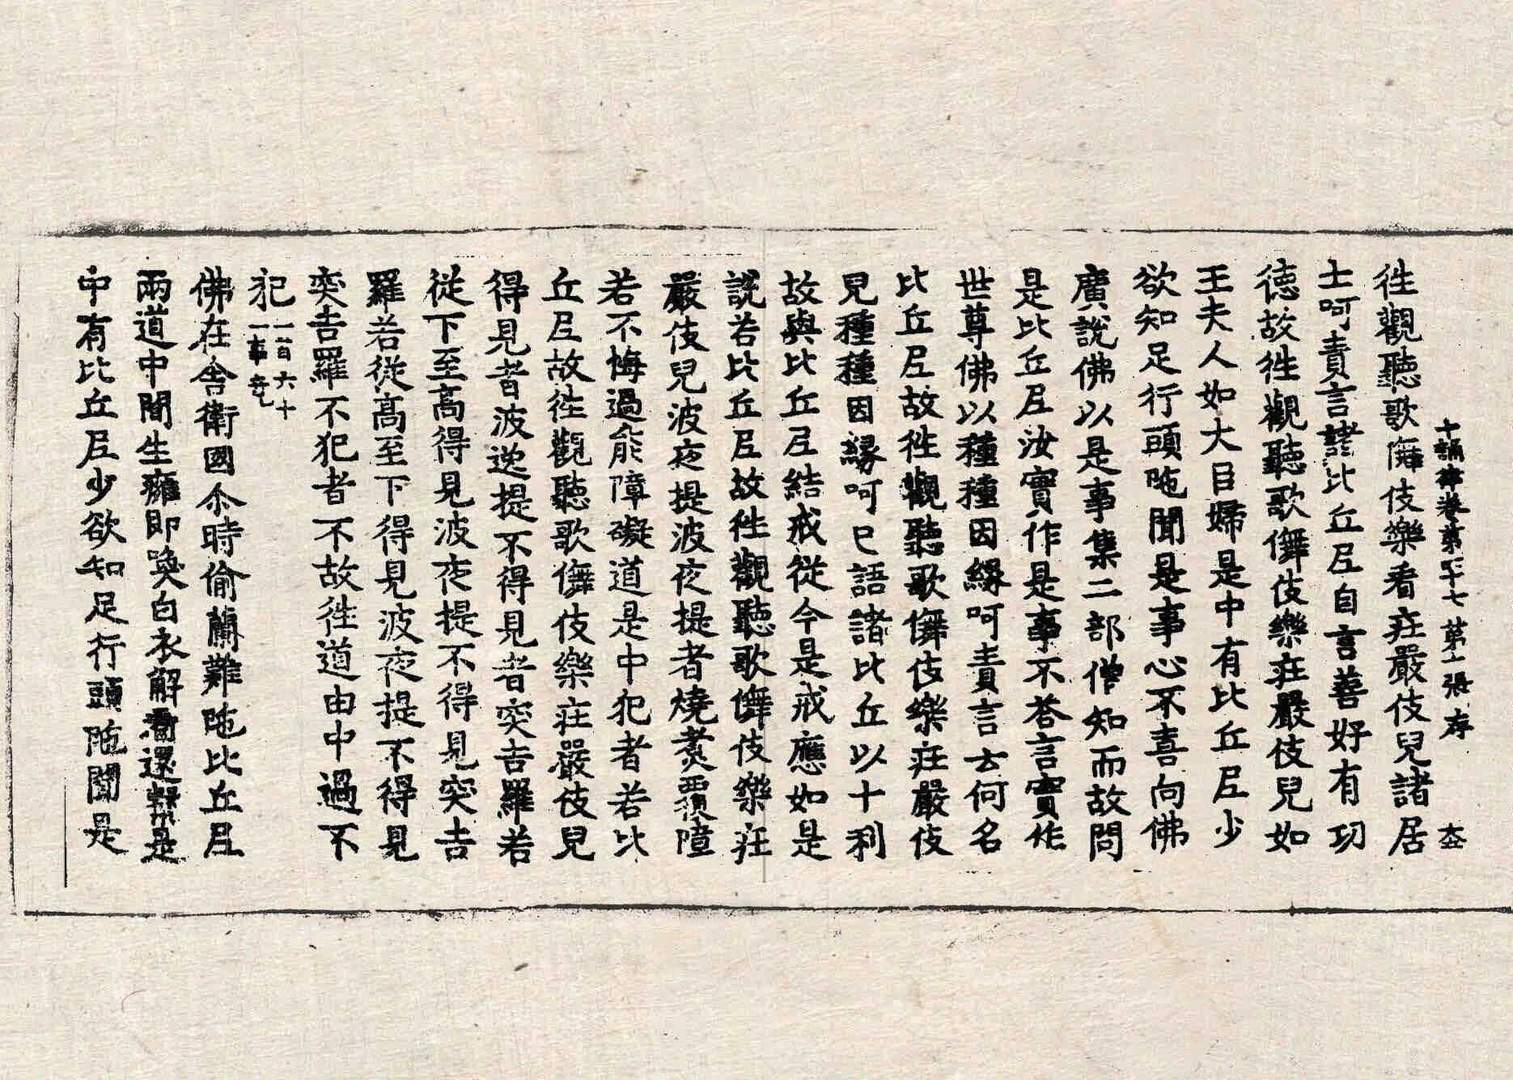 十誦律卷第四十七 第一張 存
往觀聽歌儛伎樂看莊嚴伎兒諸居
士呵責言諸比丘尼自言善好有功
德故往觀聽歌儛伎樂莊嚴伎兒如
王夫人如大臣婦是中有比丘尼少
欲知足行頭陁聞是事心不喜向佛
廣說佛以是事集二部僧知而故問
是比丘尼汝實作是事不荅言實作
世尊佛以種種因緣呵責言云何名
比丘尼故往觀聽歌儛伎樂莊嚴伎
見種種因緣呵已語諸比丘以十利
故與比丘尼結戒從今是戒應如是
說若比丘尼故往觀聽歌儛伎樂莊
嚴伎兒波夜提波夜提者燒煑覆障
若不悔過能障礙道是中犯者若比
丘尼故往觀聽歌儛伎樂莊嚴伎兒
得見者波逸提不得見者突吉羅若
從下至高得見波夜提不得見突吉
羅若從高至下得見波夜提不得見
突吉羅不犯者不故往道由中過不
犯 一百六十
一事竟
佛在舍衛國尒時偷蘭難陁比丘尼
兩道中間生癰即喚白衣解還繫是
中有比丘尼少欲知足行頭陁聞是